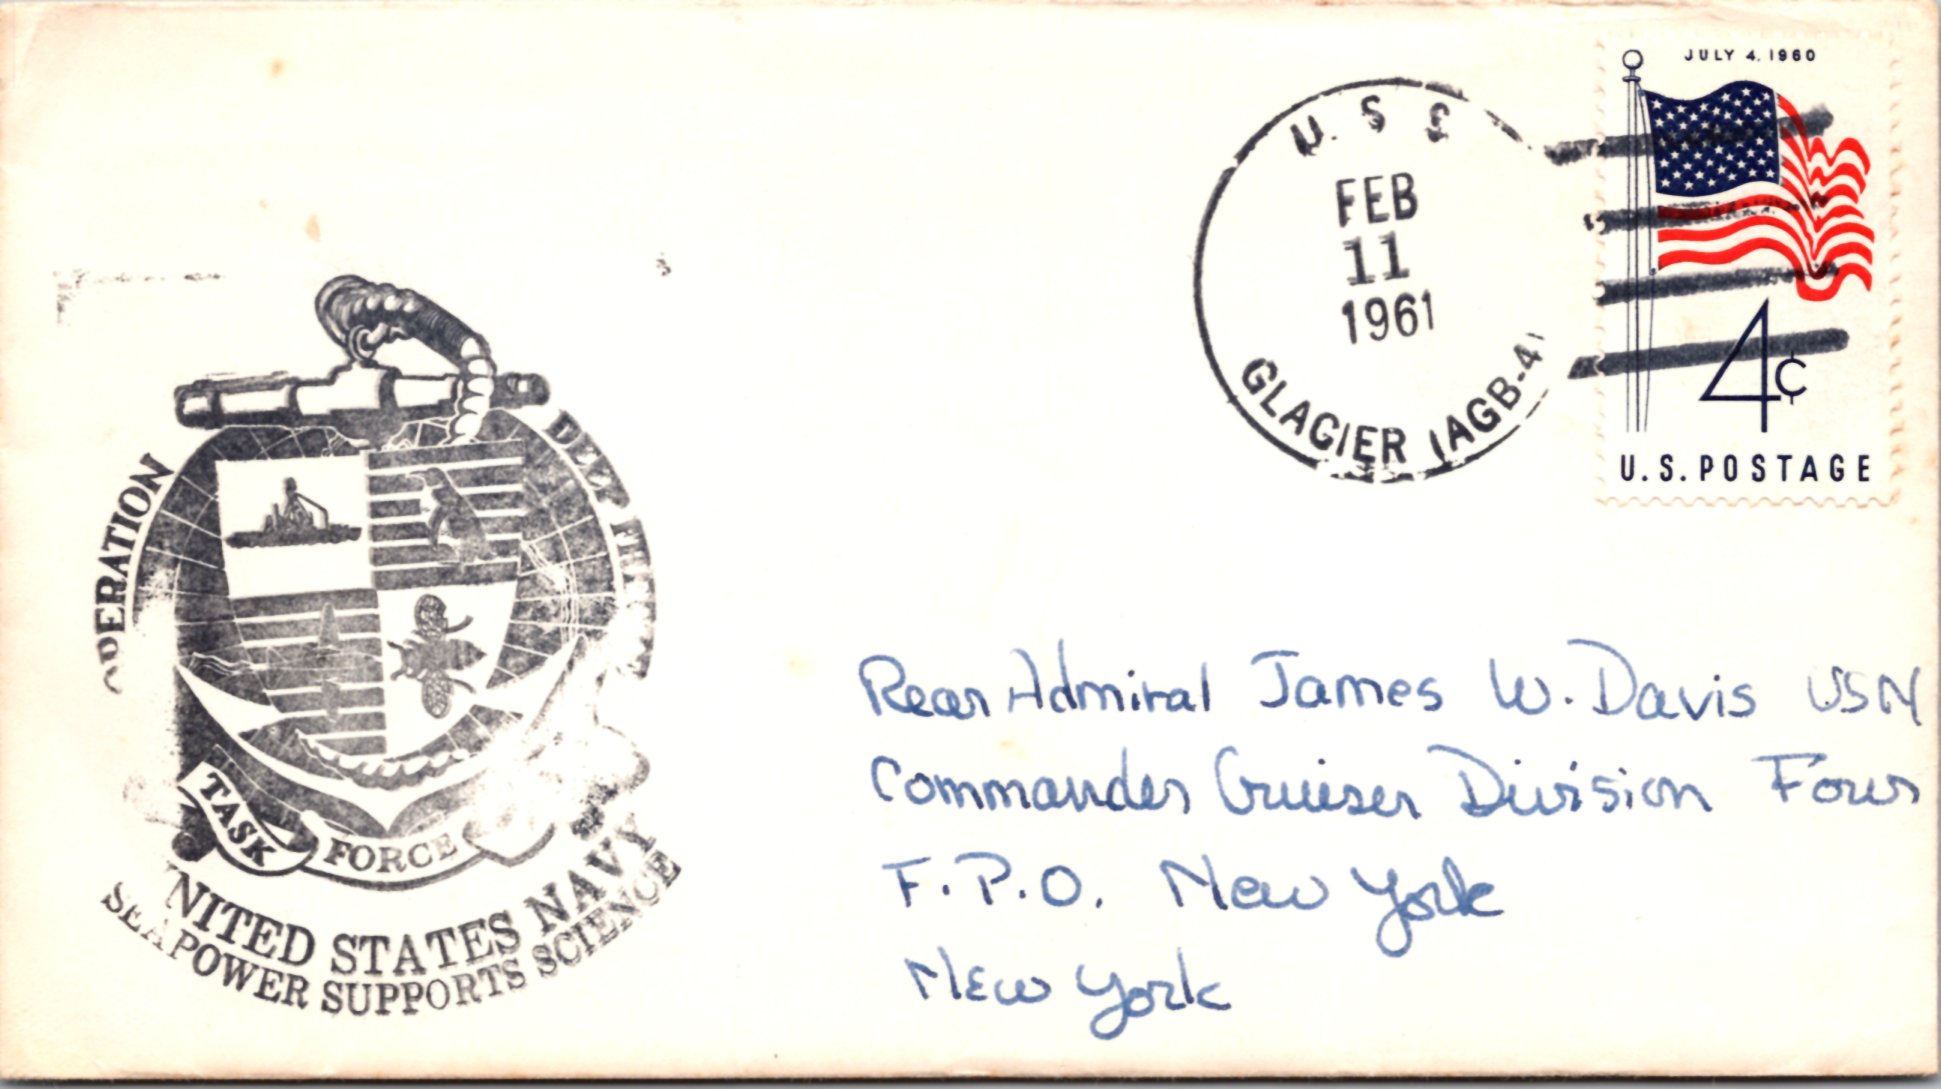 OPERATION DEEP FREEZE
TASK FORCE
UNITED STATES NAVY
SEAPOWER SUPPORTS SCIENCE
U.S.S.
FEB
11
1961
GLACIER (AGB-4)
JULY 4, 1960
4¢
U.S. POSTAGE
Rear Admiral James W. Davis USN
Commander Cruiser Division Four
F.P.O. New York
New York